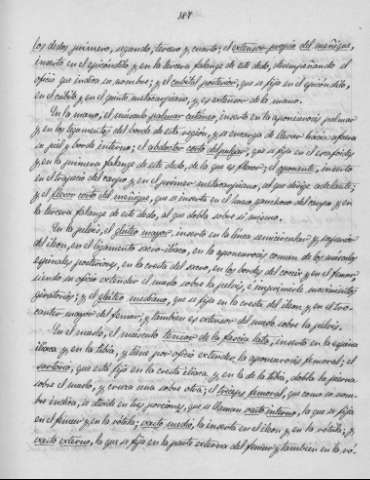 187
los dedos primero, segundo, tercero y cuarto; el extensor propio del meñique,
inserto en el epicóndilo y en la tercera falange de este dedo, desempeñando el
oficio que indica su nombre; y el cubital posterior, que se fija en el epicóndilo,
en el cúbito y en el quinto metacarpiano, y es extensor de la mano.
En la mano, el músculo palmar cutáneo, inserto en la aponeurosis palmar
y en los tegumentos del borde de esta región, y se encarga de llevar hacia afuera
su piel y borde interno; el abductor corto del pulgar, que se fija en el escafoides
y en la primera falange de este dedo, de la que es flexor; el oponente, inserto
en el trapecio del carpo y en el primer metacarpiano, al que dirige adelante;
y el flexor corto del meñique, que se inserta en el hueso ganchoso del carpo y en
la tercera falange de este dedo, al que dobla sobre sí mismo.
En la pelvis, el glúteo mayor, inserto en la línea semicircular y superior
del ileon, en el ligamento sacro-ilíaco, en la aponeurosis común de los músculos
espinales posteriores, en la cresta del sacro, en los bordes del coxis y en el femur
siendo su oficio extender el muslo sobre la pelvis, e imprimirle movimientos
giratorios; y el glúteo mediano, que se fija en la cresta del ileon y en el tro-
cánter mayor del femur, y tambien es extensor del muslo sobre la pelvis.
En el muslo, el músculo tensor de la fascia lata, inserto en la espina
ilíaca y en la tibia, y tiene por oficio extender la aponeurosis femoral; el
sartorio, que está fijo en la cresta ilíaca y en la de la tibia, dobla la pierna
sobre el muslo, y cruza una sobre otra; el triceps femoral, que como su nom-
bre indica, se divide en tres porciones, que se llaman vasto interno, la que se fija
en el femur y en la rótula; vasto medio, la inserta en el ileon y en la rótula; y
vasto externo, la que se fija en la parte externa del femur y tambien en la ró-